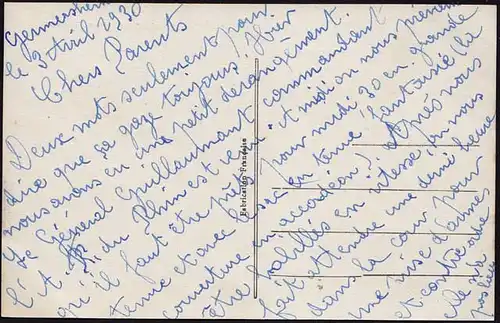 Germersheim
le 3 Avril 1930
Chers Parents
Deux mots seulement pour
dire que sa gaze toujours. Hier
nous avons eu un petit dérangement.
Le Général Guillaumant commandant
l'A du Rhin est venu. A midi on nous prévient
qu'il faut être prêt pour midi 30 en grande
tenue et avec les en tenue fantaisie (la
couverture en accordéon). Après nous
être habillés en vitesse on nous
fait attendre une demi heure
dans la cour pour
une revue d'armes
et contre ordre
le
Fabrication Française